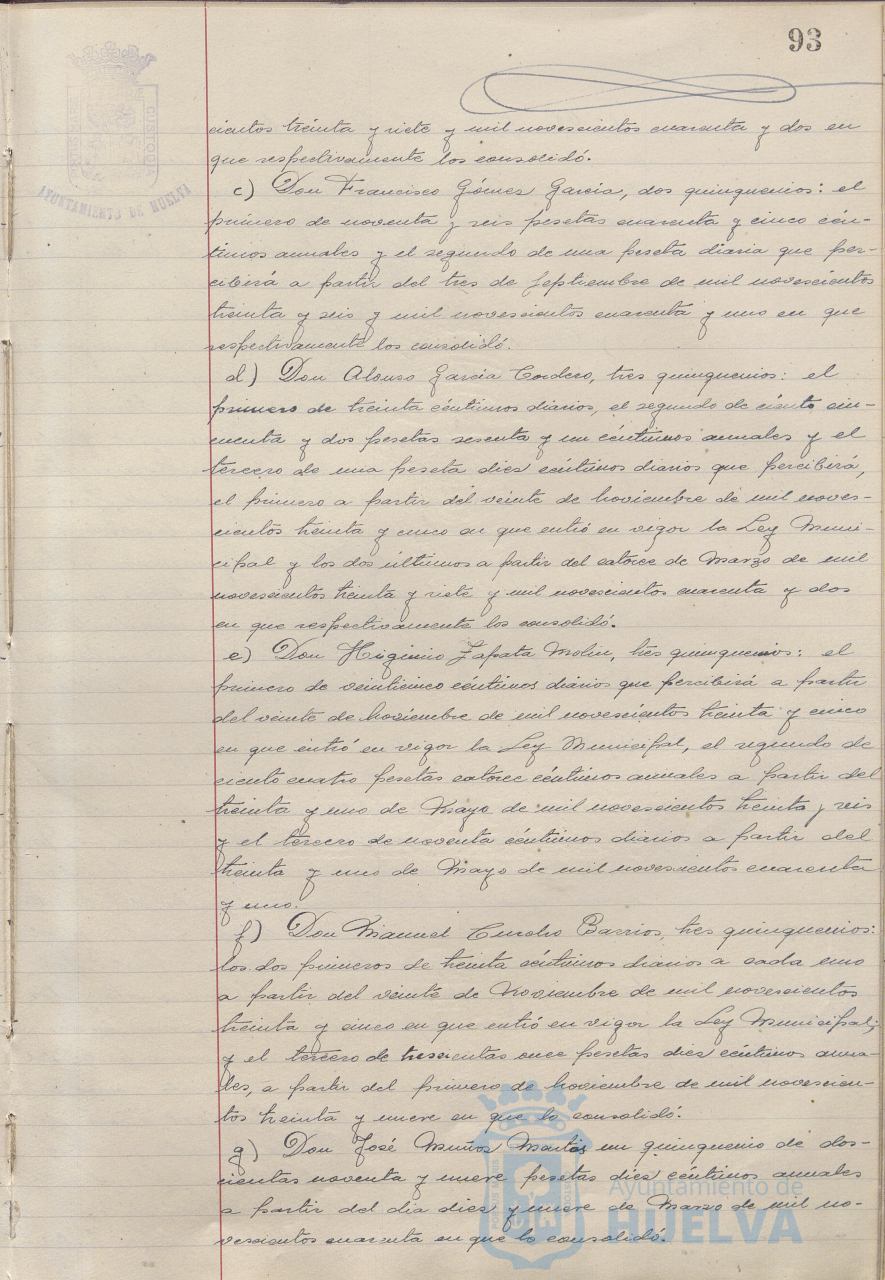 93
cientos treinta y siete y mil novescientos cuarenta y dos en
que respectivamente los consolidó.
c) Don Francisco Gómez García, dos quinquenios: el
primero de noventa y seis pesetas cuarenta y cinco cén-
timos anuales y el segundo de una peseta diaria que per-
cibirá a partir del tres de Septiembre de mil novescientos
treinta y seis y mil novescientos cuarenta y uno en que
respectivamente los consolidó.
d) Don Alonso García Cordero, tres quinquenios: el
primero de treinta céntimos diarios, el segundo de ciento cin-
cuenta y dos pesetas sesenta y un céntimos anuales y el
tercero de una peseta diez céntimos diarios que percibirá,
el primero a partir del veinte de Noviembre de mil noves-
cientos treinta y cinco en que entró en vigor la Ley Muni-
cipal y los dos últimos a partir del catorce de Marzo de mil
novescientos treinta y siete y mil novescientos cuarenta y dos
en que respectivamente los consolidó.
e) Don Higinio Zapata Molin, tres quinquenios: el
primero de veinticinco céntimos diarios que percibirá a partir
del veinte de Noviembre de mil novescientos treinta y cinco
en que entró en vigor la Ley Municipal, el segundo de
ciento cuatro pesetas catorce céntimos anuales a partir del
treinta y uno de Mayo de mil novescientos treinta y seis
y el tercero de noventa céntimos diarios a partir del
treinta y uno de Mayo de mil novescientos cuarenta
y uno.
f) Don Manuel Barrios, tres quinquenios:
los dos primeros de treinta céntimos diarios a cada uno
a partir del veinte de Noviembre de mil novescientos
treinta y cinco en que entró en vigor la Ley Municipal;
y el tercero de trescientas once pesetas diez céntimos anua-
les, a partir del primero de Noviembre de mil novescien-
tos treinta y nueve en que lo consolidó.
g) Don José Muños Martos un quinquenio de dos-
cientas noventa y nueve pesetas diez céntimos anuales
a partir del dia diez y nueve de Marzo de mil no-
vescientos cuarenta en que lo consolidó.
AYUNTAMIENTO DE HUELVA
CUSTODIA
Ayuntamiento de
HUELVA